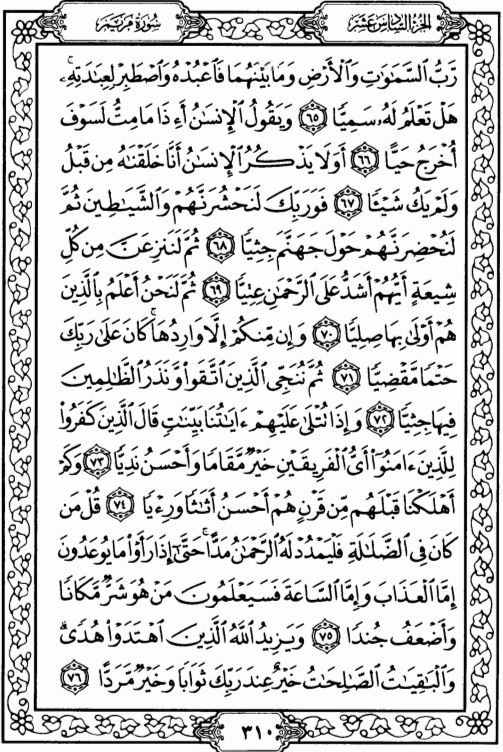 الجزء السادس عشر
سورة مريم
رَّبُّ السَّمَٰوَٰتِ وَالْأَرْضِ وَمَا بَيْنَهُمَا فَاعْبُدْهُ وَاصْطَبِرْ لِعِبَٰدَتِهِۦۚ
هَلْ تَعْلَمُ لَهُۥ سَمِيًّا ٦٥ وَيَقُولُ الْإِنسَٰنُ أَءِذَا مَا مِتُّ لَسَوْفَ
أُخْرَجُ حَيًّا ٦٦ أَوَلَا يَذْكُرُ الْإِنسَٰنُ أَنَّا خَلَقْنَٰهُ مِن قَبْلُ
وَلَمْ يَكُ شَيْـًٔا ٦٧ فَوَرَبِّكَ لَنَحْشُرَنَّهُمْ وَالشَّيَٰطِينَ ثُمَّ
لَنُحْضِرَنَّهُمْ حَوْلَ جَهَنَّمَ جِثِيًّا ٦٨ ثُمَّ لَنَنزِعَنَّ مِن كُلِّ
شِيعَةٍ أَيُّهُمْ أَشَدُّ عَلَى الرَّحْمَٰنِ عِتِيًّا ٦٩ ثُمَّ لَنَحْنُ أَعْلَمُ بِالَّذِينَ
هُمْ أَوْلَىٰ بِهَا صِلِيًّا ٧٠ وَإِن مِّنكُمْ إِلَّا وَارِدُهَاۚ كَانَ عَلَىٰ رَبِّكَ
حَتْمًا مَّقْضِيًّا ٧١ ثُمَّ نُنَجِّي الَّذِينَ اتَّقَوا وَّنَذَرُ الظَّٰلِمِينَ
فِيهَا جِثِيًّا ٧٢ وَإِذَا تُتْلَىٰ عَلَيْهِمْ ءَايَٰتُنَا بَيِّنَٰتٍ قَالَ الَّذِينَ كَفَرُوا
لِلَّذِينَ ءَامَنُوا أَيُّ الْفَرِيقَيْنِ خَيْرٌ مَّقَامًا وَأَحْسَنُ نَدِيًّا ٧٣ وَكَمْ
أَهْلَكْنَا قَبْلَهُم مِّن قَرْنٍ هُمْ أَحْسَنُ أَثَٰثًا وَرِءْيًا ٧٤ قُلْ مَن
كَانَ فِي الضَّلَٰلَةِ فَلْيَمْدُدْ لَهُ الرَّحْمَٰنُ مَدًّاۚ حَتَّىٰٓ إِذَا رَأَوْا مَا يُوعَدُونَ
إِمَّا الْعَذَابَ وَإِمَّا السَّاعَةَ فَسَيَعْلَمُونَ مَنْ هُوَ شَرٌّ مَّكَانًا
وَأَضْعَفُ جُندًا ٧٥ وَيَزِيدُ اللَّهُ الَّذِينَ اهْتَدَوْا هُدًىۗ
وَالْبَٰقِيَٰتُ الصَّٰلِحَٰتُ خَيْرٌ عِندَ رَبِّكَ ثَوَابًا وَخَيْرٌ مَّرَدًّا ٧٦
٣١٠